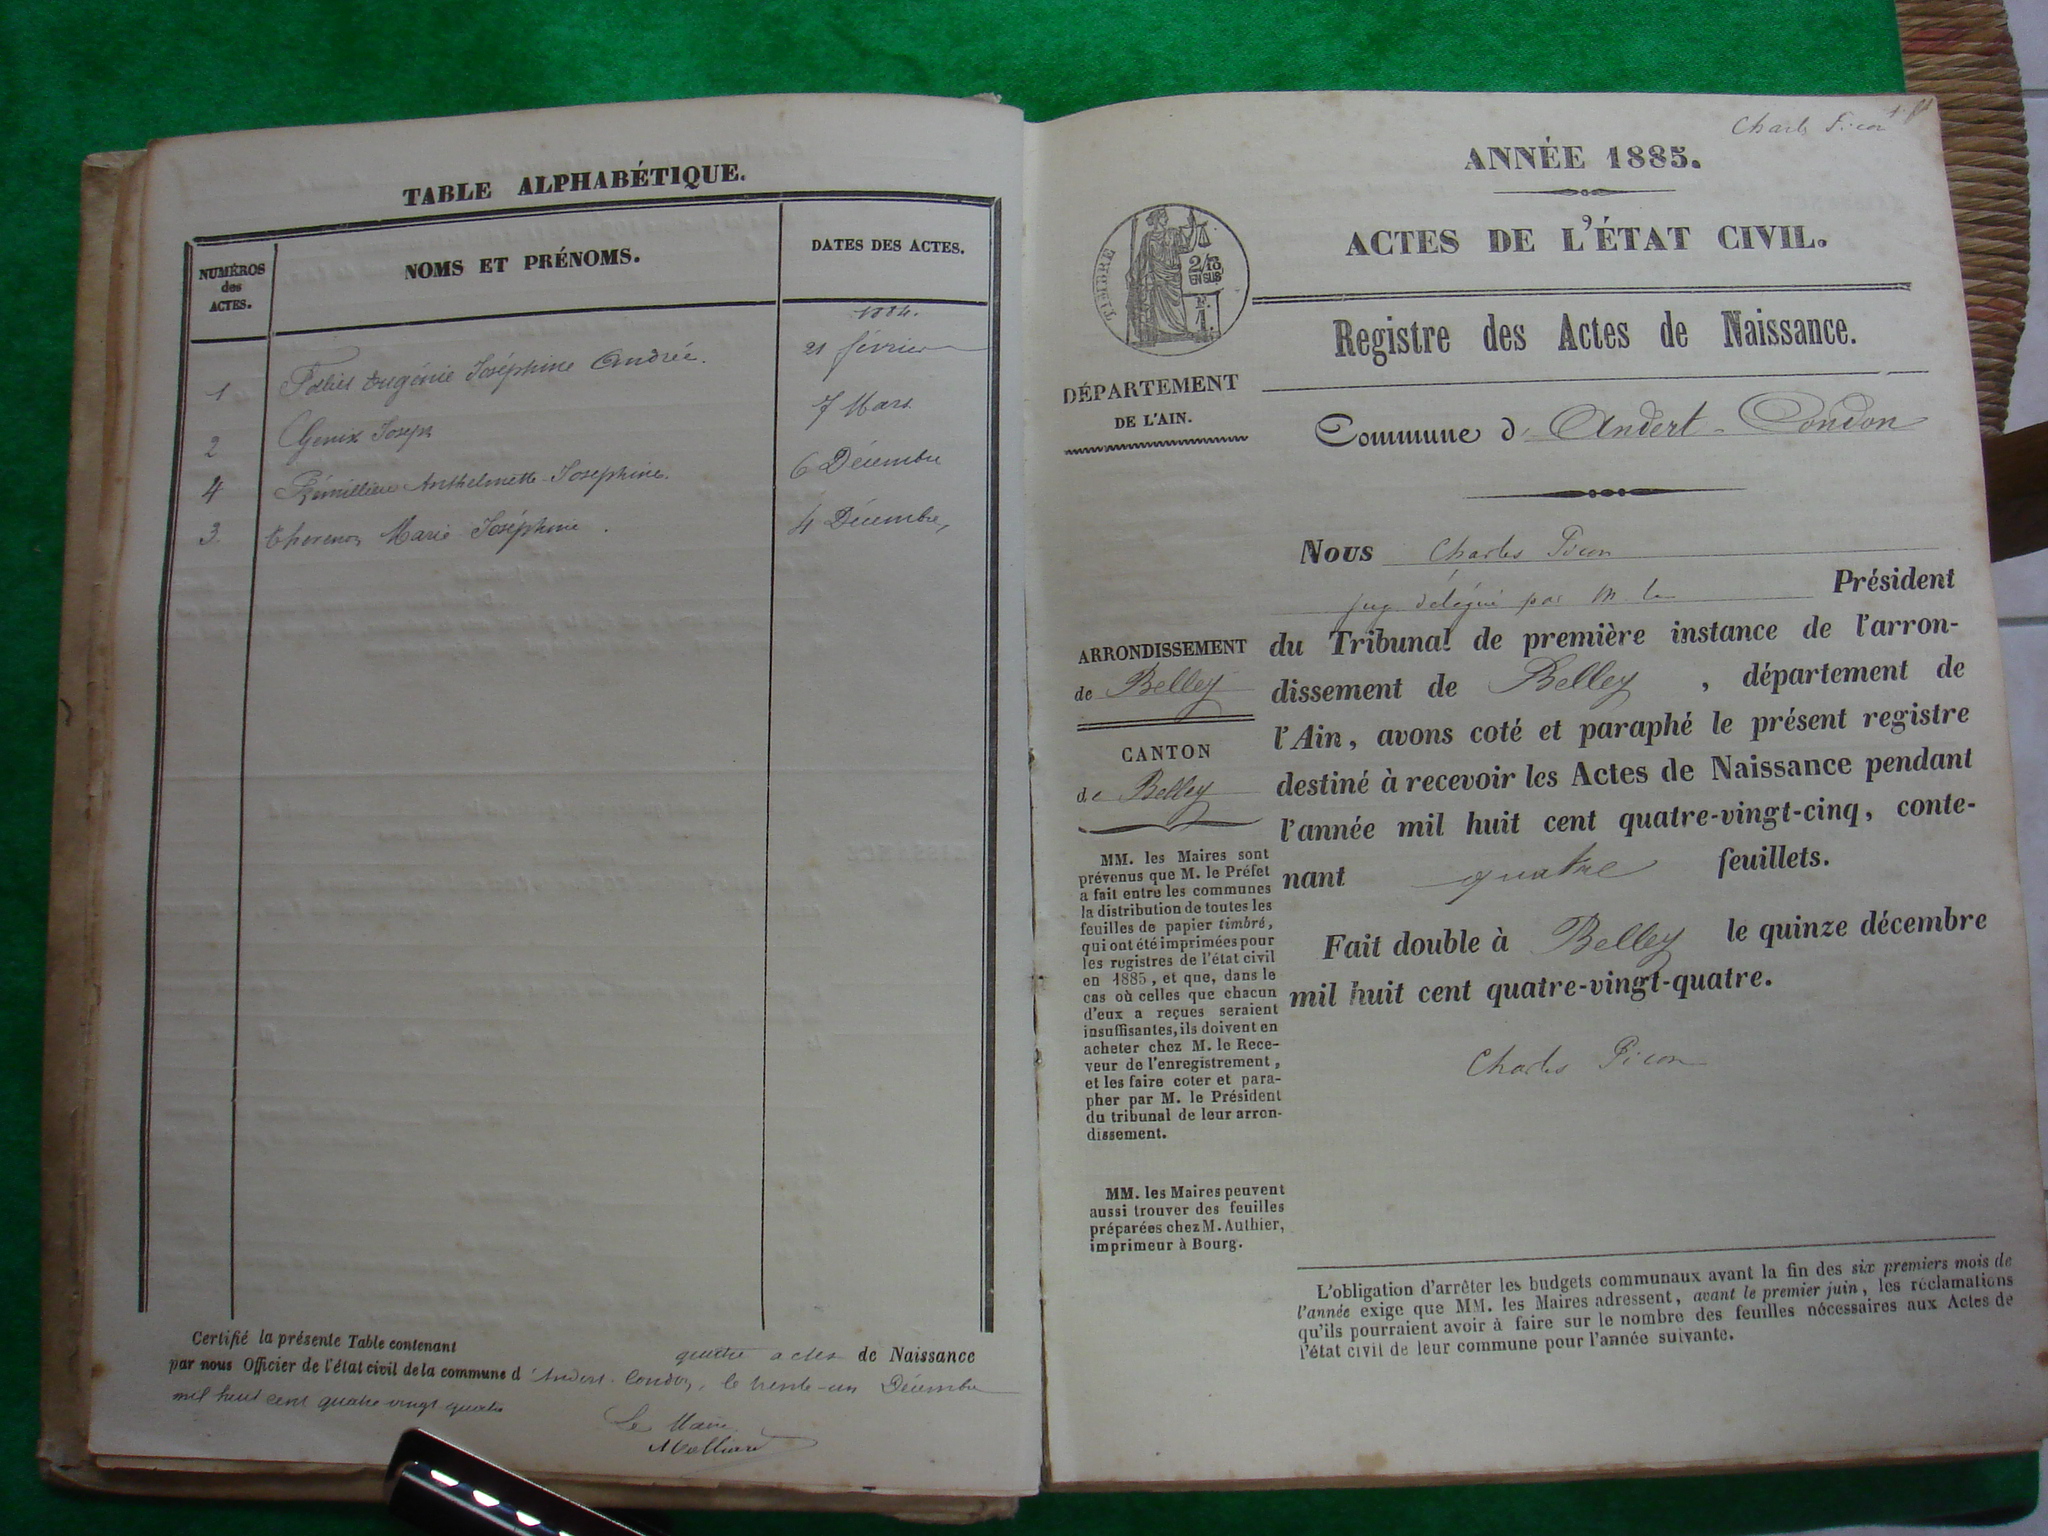 TABLE ALPHABÉTIQUE.
NUMÉROS
des
ACTES.
NOMS ET PRÉNOMS.
DATES DES ACTES.
1884.
1 Eugénie Joséphine Andrée. 21 février
2 Genix Joseph 7 Mars
4 Rémillieux Anthelmette Joséphine. 6 Décembre
3 Thevenon Marie Joséphine. 4 Décembre,
Certifié la présente Table contenant quatre actes de Naissance
par nous Officier de l'état civil de la commune d'Andert-Condon, le trente-un Décembre
mil huit cent quatre vingt quatre
Le Maire
Charles Picon
ANNÉE 1885.
ACTES DE L'ÉTAT CIVIL.
TIMBRE
2/10
EN SUS
N.
1.
Registre des Actes de Naissance.
DÉPARTEMENT
DE L'AIN.
Commune d'Andert-Condon
Nous Charles Picon
juge délégué par M. le Président
du Tribunal de première instance de l'arron-
dissement de Belley, département de
l'Ain, avons coté et paraphé le présent registre
destiné à recevoir les Actes de Naissance pendant
l'année mil huit cent quatre-vingt-cinq, conte-
nant quatre feuillets.
Fait double à Belley le quinze décembre
mil huit cent quatre-vingt-quatre.
Charles Picon
ARRONDISSEMENT
de Belley
CANTON
de Belley
MM. les Maires sont
prévenus que M. le Préfet
a fait entre les communes
la distribution de toutes les
feuilles de papier timbré,
qui ont été imprimées pour
les registres de l'état civil
en 1885, et que, dans le
cas où celles que chacun
d'eux a reçues seraient
insuffisantes, ils doivent en
acheter chez M. le Rece-
veur de l'enregistrement,
et les faire coter et para-
pher par M. le Président
du tribunal de leur arron-
dissement.
MM. les Maires peuvent
aussi trouver des feuilles
préparées chez M. Authier,
imprimeur à Bourg.
L'obligation d'arrêter les budgets communaux avant la fin des six premiers mois de
l'année exige que MM. les Maires adressent, avant le premier juin, les réclamations
qu'ils pourraient avoir à faire sur le nombre des feuilles nécessaires aux Actes de
l'état civil de leur commune pour l'année suivante.